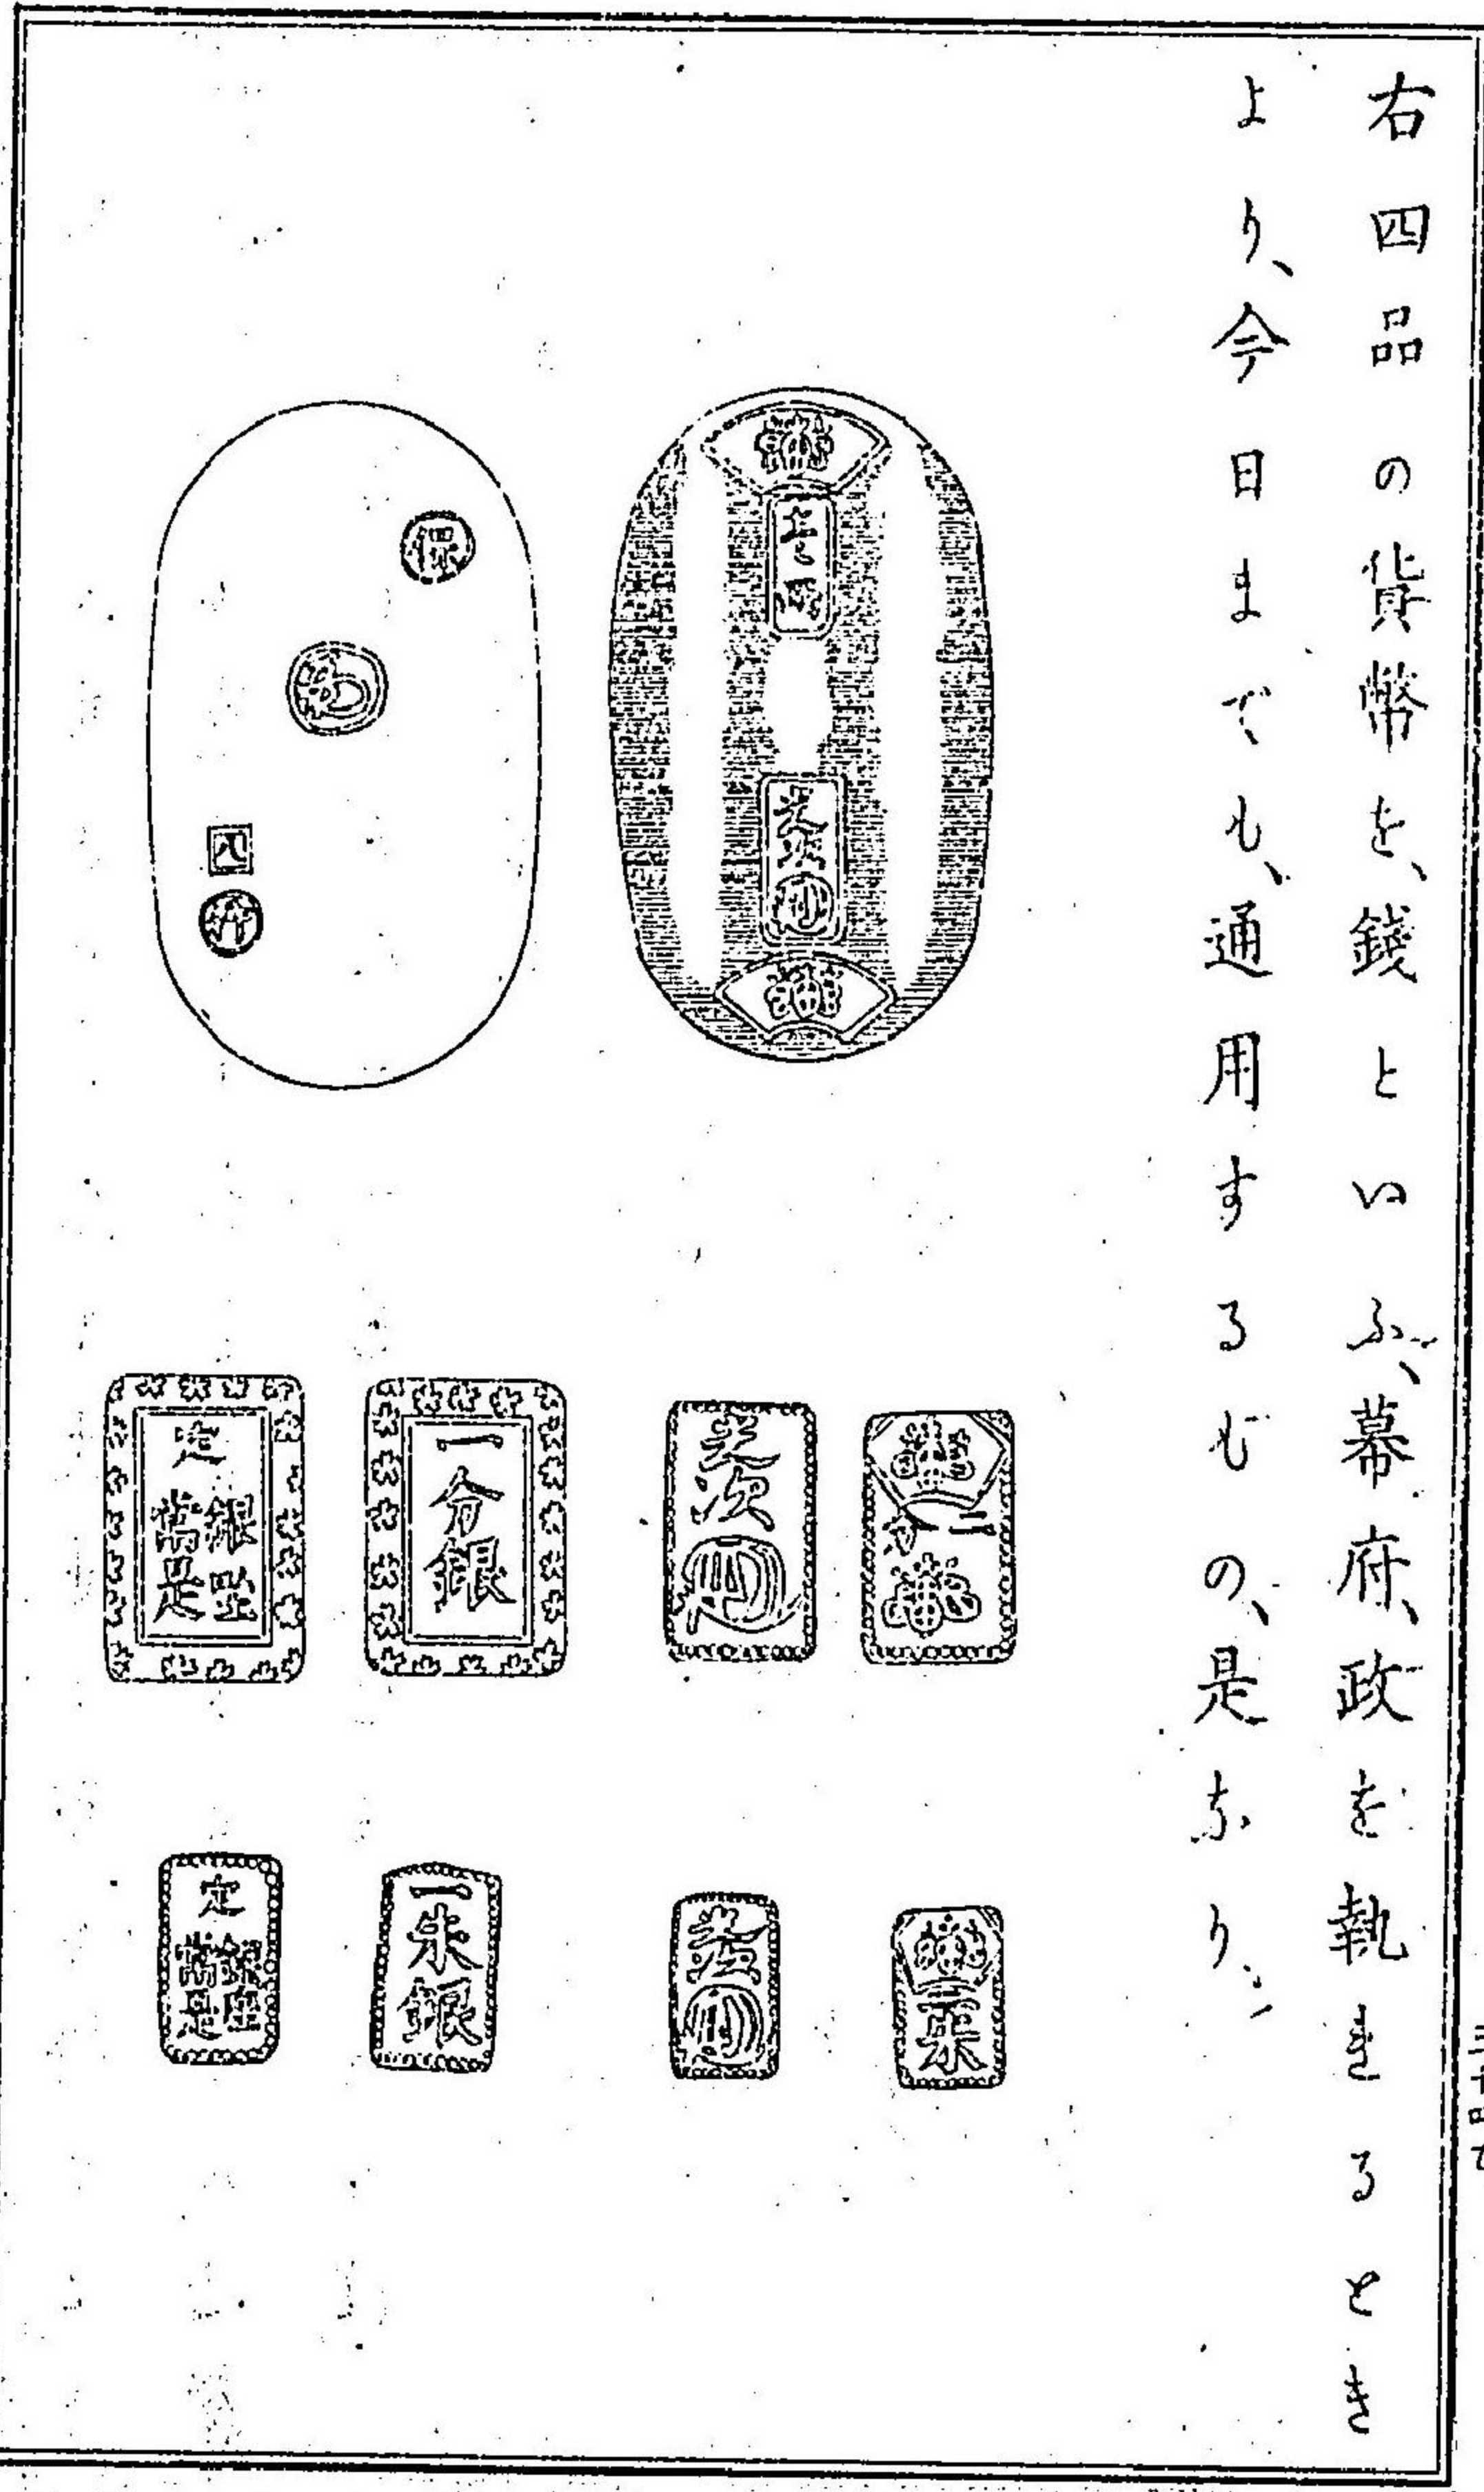 右四品の貨幣を、錢といふ、幕府、政を執れるとき
より、今日までも、通用するもの、是なり、
壱両
光次
保
八
二分
光次
一分銀
定
銀座
常是
二朱
光次
一朱銀
定
銀座
常是